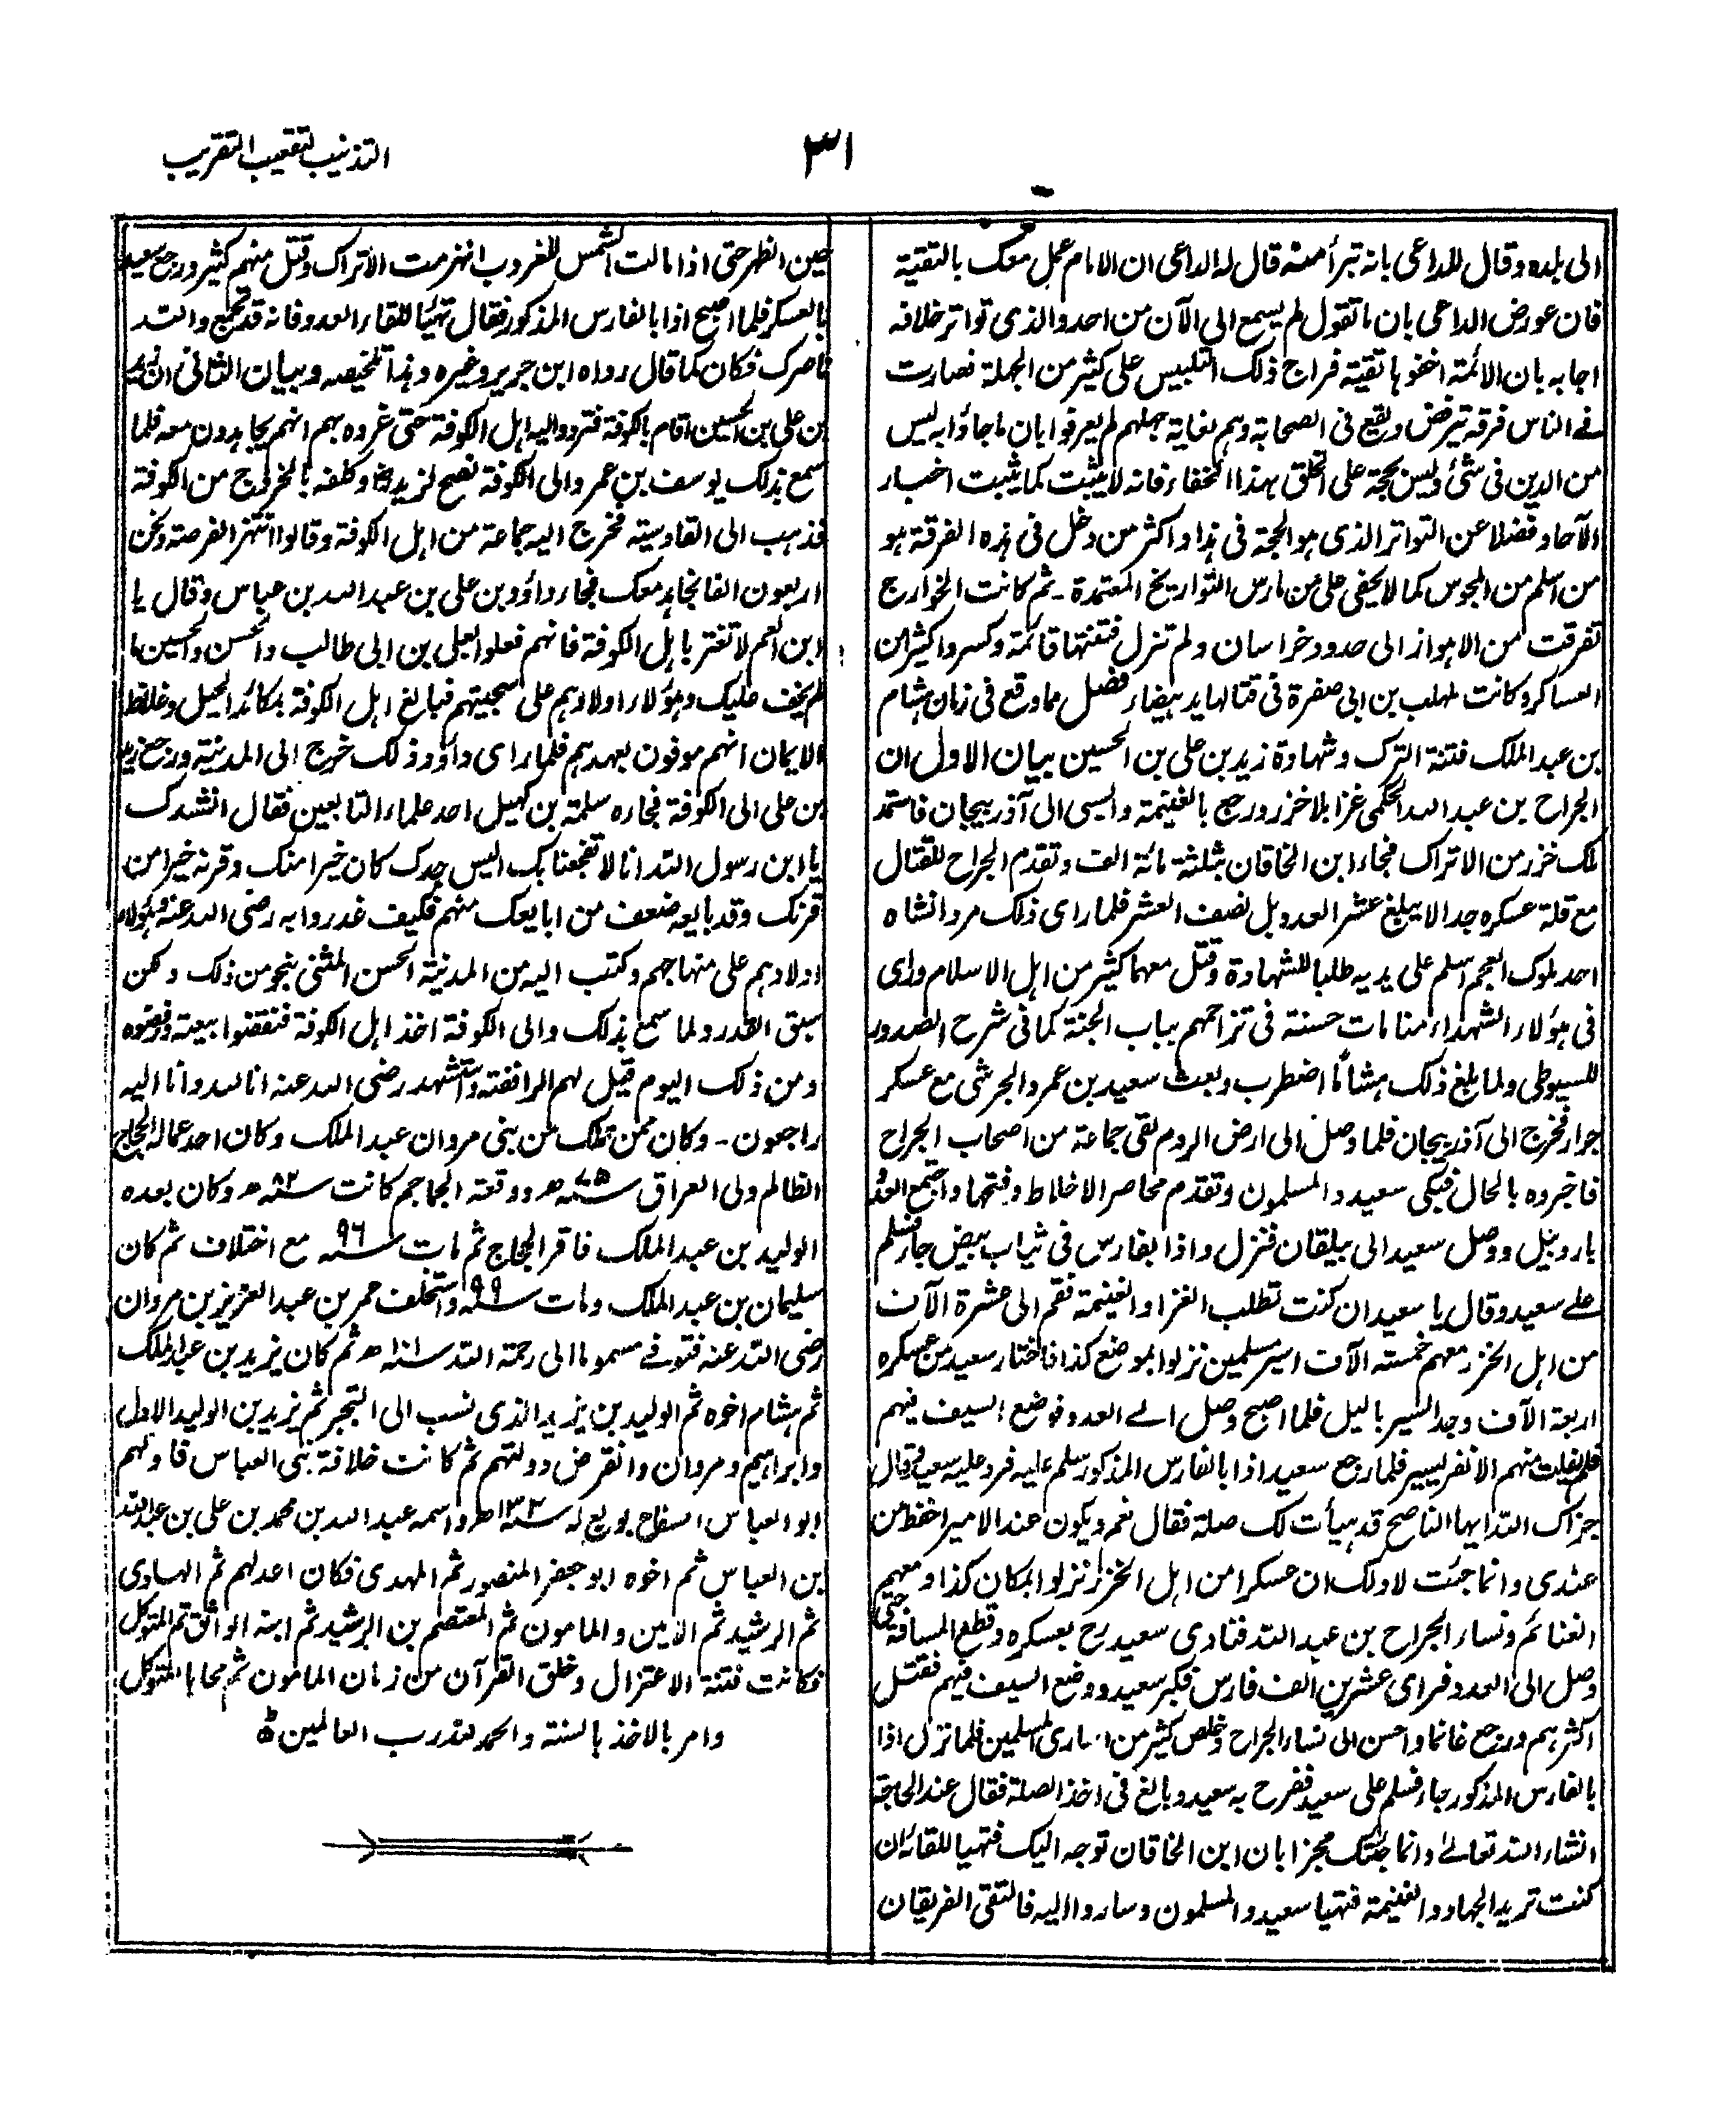 التذنيب لتعقيب التقريب
٣١
الى بلده وقال للداعى بانه تبرأ منه قال له الداعى ان الامام عمل معك بالتقية
فان عورض الداعى بان ما تقول لم يسمع الى الآن من احد والذى تواتر خلافه
اجابه بان الائمة اخفوها تقية فراج ذلك التلبيس على كثير من الجهلة فصارت
فى الناس فرقة ترفض وتقع فى الصحابة وهم لغاية جهلهم لم يعرفوا بان ما جاؤا به ليس
من الدين فى شئ وليس بحجة على الخلق بهذا الخفاء فانه لا يثبت كما يثبت اخبار
الآحاد فضلا عن التواتر الذى هو الحجة فى هذا واكثر من دخل فى هذه الفرقة هو
من اسلم من المجوس كما لا يخفى على من مارس التواريخ المعتمدة ـ ثم كانت الخوارج
تفرقت من الاهواز الى حدود خراسان ولم تزل فتنتها قائمة وكسروا كثيرا من
العساكر وكانت لمهلب بن ابى صفرة فى قتالها يد بيضاء فضل مما وقع فى زمان هشام
بن عبد الملك فتنة الترك وشهادة زيد بن على بن الحسين بيان الاول ان
الجراح بن عبد الله الحكمى غزا بلاخزر ورجع بالغنيمة والسبى الى آذربيجان فاستمد
ملك خزر من الاتراك فجاء ابن الخاقان بثلثة مائة الف وتقدم الجراح للقتال
مع قلة عسكره جدا لا يبلغ عشر العدو بل نصف العشر فلما راى ذلك مردانشاه
احد ملوك العجم اسلم على يديه طلبا للشهادة وقتل معهما كثير من اهل الاسلام وراى
فى هؤلاء الشهداء منامات حسنة فى تزاحمهم بباب الجنة كما فى شرح الصدور
للسيوطى ولما بلغ ذلك هشاما اضطرب وبعث سعيد بن عمرو الجرشى مع عسكر
جرار فخرج الى آذربيجان فلما وصل الى ارض الروم لقى جماعة من اصحاب الجراح
فاخبروه بالحال فبكى سعيد والمسلمون وتقدم محاصر الاخلاط وفتحها واجتمع العدو
باردبيل ووصل سعيد الى بيلقان فنزل واذا بفارس فى ثياب بيض جاء فسلم
على سعيد وقال يا سعيد ان كنت تطلب الغزا والغنيمة فقم الى عشرة الآف
من اهل الخزر معهم خمسة الآف اسير مسلمين نزلوا بموضع كذا فاختار سعيد من عسكره
اربعة الآف وجد السير باليل فلما اصبح وصل الى العدو فوضع السيف فيهم
فلم يفلت منهم الا نفر يسير فلما رجع سعيد اذا بالفارس المذكور سلم عليه فرد عليه سعيد وقال
جزاك الله ايها الناصح قد هيأت لك صلة فقال نعم ويكون عند الامير احفظ من
عندى وانما جئت لادلك ان عسكرا من اهل الخزر نزلوا بمكان كذا ومعهم
الغنائم ونساء الجراح بن عبد الله فنادى سعيد رح بعسكره وقطع المسافة حتى
وصل الى العدو فراى عشرين الف فارس فكبر سعيد ووضع السيف فيهم فقتل
اكثرهم ورجع غانما واحسن الى نساء الجراح وخلص كثير من اسارى المسلمين فلما نزل اذا
بالفارس المذكور جاء فسلم على سعيد ففرح به سعيد وبالغ فى اخذ الصلة فقال عند الحاجة
انشاء الله تعالى وانما جئتك مخبرا بان ابن الخاقان توجه اليك فتهيا للقائه ان
كنت تريد الجهاد والغنيمة فتهيا سعيد والمسلمون وساروا اليه فالتقى الفريقان
حين الظهر حتى اذا مالت الشمس للغروب انهزمت الاتراك وقتل منهم كثير ورجع سعيد
بالعسكر فلما اصبح اذا بالفارس المذكور فقال تهيا للقاء العدو فانه قد تجمع والله
ناصرك فكان كما قال رواه ابن جرير وغيره وهذا تلخيصه وبيان الثانى ان زيد
بن على بن الحسين اقام بالكوفة فتردد اليه اهل الكوفة حتى غروه بهم انهم يجاهدون معه فلما
سمع بذلك يوسف بن عمر والى الكوفة نصح لزيد رض وكلفه بالخروج من الكوفة
فذهب الى القادسية فخرج اليه جماعة من اهل الكوفة وقالوا انتهز الفرصة ونحن
اربعون الفا نجاهد معك فجاء داؤد بن على بن عبد الله بن عباس وقال يا
ابن العم لا تغتر باهل الكوفة فانهم فعلوا بعلى بن ابى طالب والحسن والحسين ما
لم يخف عليك وهؤلاء اولادهم على سجيتهم فبالغ اهل الكوفة بمكائد الحيل وغلائظ
الايمان انهم موفون بعهدهم فلما راى داؤد ذلك خرج الى المدينة ورجع زيد
بن على الى الكوفة فجاءه سلمة بن كهيل احد علماء التابعين فقال انشدك
يا ابن رسول الله انا لا تفجعنا بك اليس جدك كان خيرا منك وقرنه خيرا من
قرنك وقد بايعه ضعف من ابايعك منهم فكيف غدروا به رضى الله عنه وهؤلاء
اولادهم على منهاجهم وكتب اليه من المدينة الحسن المثنى بنحو من ذلك ولكن
سبق القدر ولما سمع بذلك والى الكوفة اخذ اهل الكوفة فنقضوا بيعته ورفضوه
ومن ذلك اليوم قيل لهم الرافضة واستشهد رضى الله عنه انا لله وانا اليه
راجعون ـ وكان ممن تملك من بنى مروان عبد الملك وكان احد عماله الحجاج
الظالم ولى العراق سنة ٧٥ھ ووقعة الجماجم كانت سنة ٨٢ھ وكان بعده
الوليد بن عبد الملك فاقر الحجاج ثم مات سنة ٩٦ مع اختلاف ثم كان
سليمان بن عبد الملك ومات سنة ٩٩ واستخلف عمر بن عبد العزيز بن مروان
رضى الله عنه فتوفے مسموما الى رحمة الله سنة ١٠١ھ ثم كان يزيد بن عبد الملك
ثم هشام اخوه ثم الوليد بن يزيد الذى نسب الى التجبر ثم يزيد بن الوليد الاول
وابراهيم ومروان وانقرض دولتهم ثم كانت خلافة بنى العباس فاولهم
ابو العباس السفاح بويع له سنة ١٣٢ھ واسمه عبد الله بن محمد بن على بن عبد الله
بن العباس ثم اخوه ابو جعفر المنصور ثم المهدى فكان اعدلهم ثم الهادى
ثم الرشيد ثم الامين والمامون ثم المعتصم بن الرشيد ثم ابنه الواثق ثم المتوكل
فكانت فتنة الاعتزال وخلق القرآن من زمان المامون ثم محاها المتوكل
وامر بالاخذ بالسنة والحمد لله رب العالمين